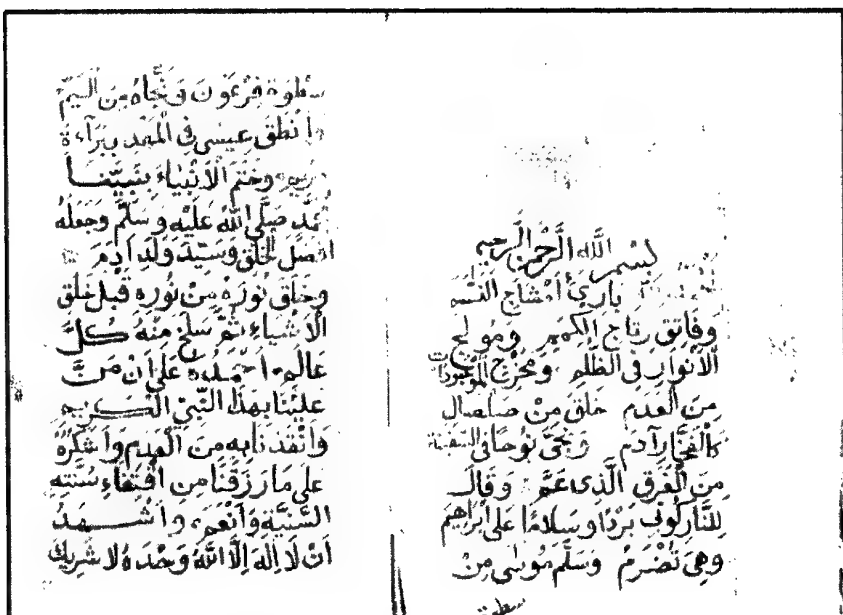 بسم الله الرحمن الرحيم
بارئ أمشاج النسم
وفاتق رتاج الكمم ومولج
الأنوار في الظلم ومخرج الموجودات
من العدم خلق من صلصال
كالفخار آدم ونجى نوحا في السفينة
من الغرق الذي عم وقال
للنار كوني بردا وسلاما على ابراهيم
وهي تضرم وسلم موسى من
سطوة
سطوة فرعون ونجاه من اليم
وانطق عيسى في المهد ببراءة
وختم الأنبياء بنبينا
محمد صلى الله عليه وسلم وجعله
افضل الخلق وسيد ولد ادم
وخلق نوره من نوره قبل خلق
الأشياء ثم سلخ منه كل
عالم احمده على ان من
علينا بهذا النبي الكريم
وانقذنا به من العدم واشكره
على ما رزقنا من اقتفاء سنته
السنية وانعم واشهد
ان لا إله إلا الله وحده لا شريك